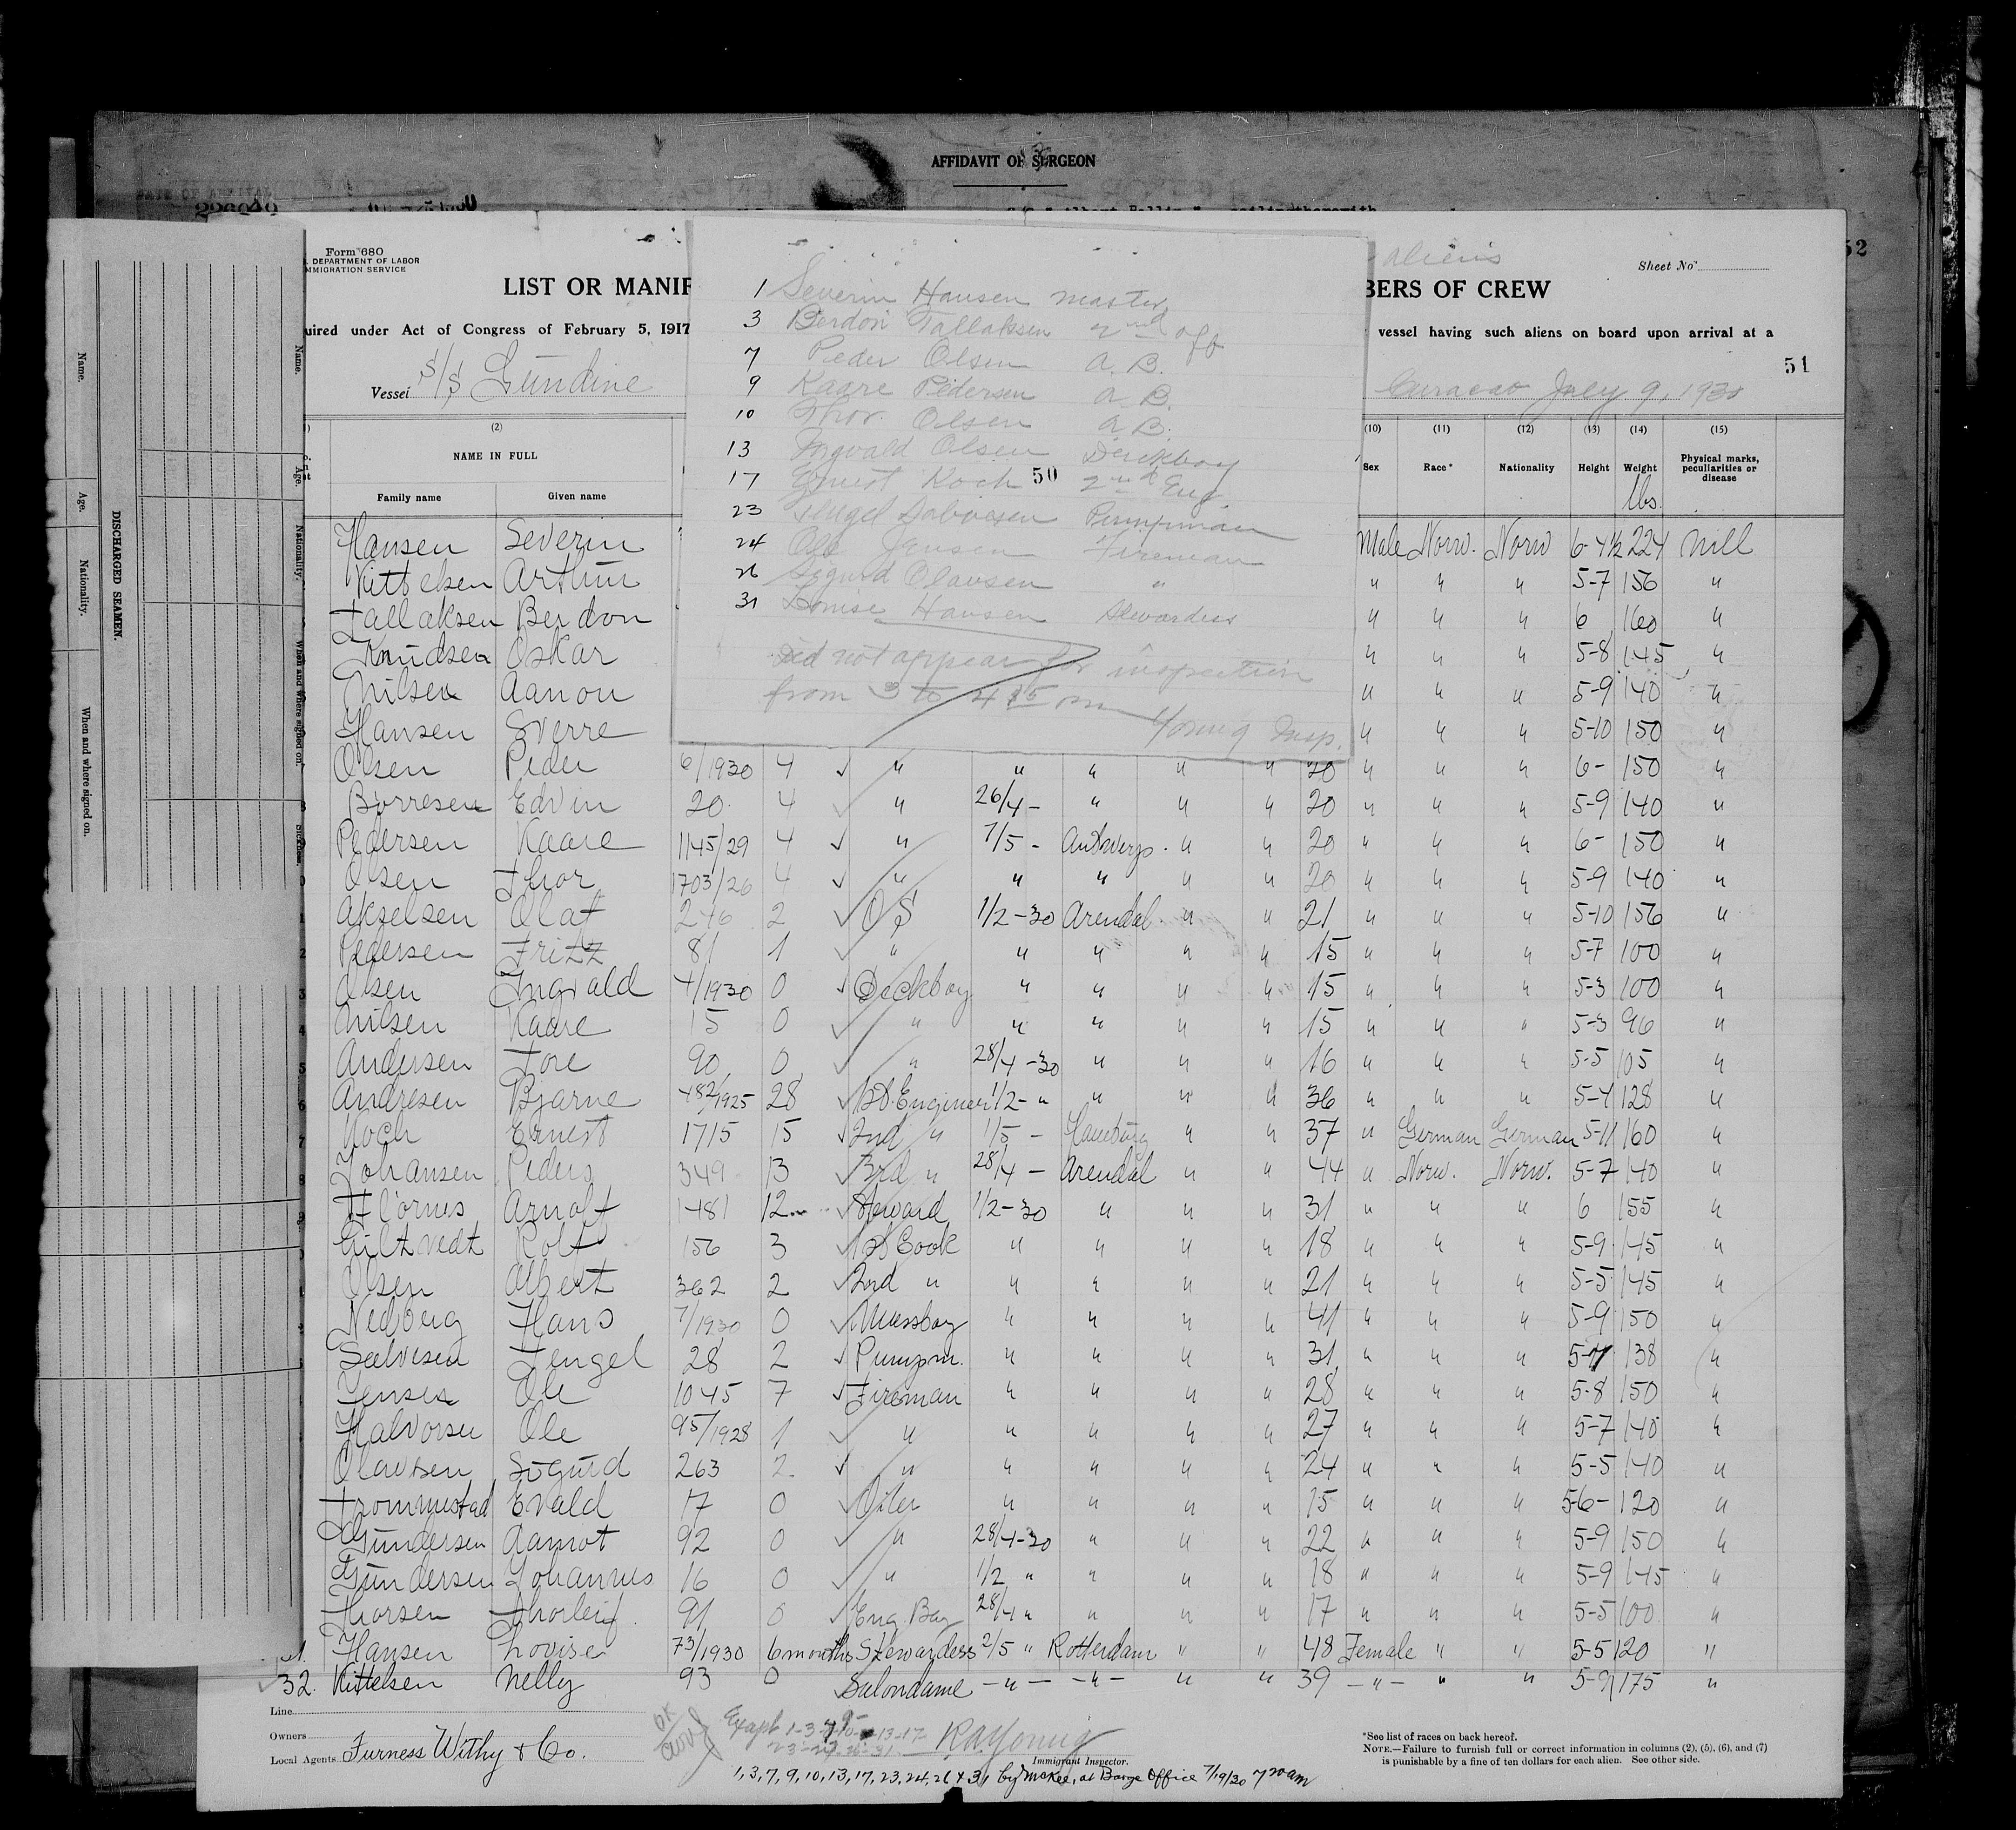 AFFIDAVIT OF SURGEON
52
Form 680
DEPARTMENT OF LABOR
IMMIGRATION SERVICE
aliens
Sheet No
LIST OR MANIF
BERS OF CREW
uired under Act of Congress of February 5, 1917
vessel having such aliens on board upon arrival at a
51
Vessel S/S Gundine
Curacao July 9, 1930
1 Severin Hansen master
3 Berdon Tallaksen 2nd off
7 Peder Olsen A. B.
9 Kaare Pedersen A. B.
10 Thor Olsen A B.
13 Ingvald Olsen Deckboy
17 Ernest Koch 50 2nd Eng
23 Tengel Pumpman
24 Ole Jensen Fireman
26 Sigurd Olausen "
31 Louise Hansen Stewardess
Did not appear for inspection
from 3 to 4 15 pm
Young Insp.
(2) (10) (11) (12) (13) (14) (15)
NAME IN FULL Sex Race* Nationality Height Weight Physical marks, peculiarities or disease
Family name Given name lbs.
Hansen Severin Male Norw. Norw 6-4½ 224 nill
Kittelsen Arthur " " " 5-7 156 "
Tallaksen Berdon " " " 6 160 "
Knudsen Oskar " " " 5-8 145 "
Nilsen Aanon " " " 5-9 140 "
Hansen Sverre " " " 5-10 150 "
Olsen Peder 6/1930 4 " " " " " 20 " " " 6- 150 "
Borresen Edvin 20 4 " 26/4- " " " 20 " " " 5-9 140 "
Pedersen Kaare 1145/29 4 " 7/5 - Antwerp. " " 20 " " " 6- 150 "
Olsen Thor 1703/26 4 " " " " " 20 " " " 5-9 140 "
Akselsen Olaf 246 2 OS 1/2-30 Arendal " " 21 " " " 5-10 156 "
Pedersen Fritz 81 1 " " " " " 15 " " " 5-7 100 "
Olsen Ingvald 4/1930 0 Deckboy " " " " 15 " " " 5-3 100 "
Nilsen Kaare 15 0 " " " " " 15 " " " 5-3 96 "
Andersen Tore 90 0 " 28/4-30 " " " 16 " " " 5-5 105 "
Andresen Bjarne 482/1925 28 1st Engineer 1/2- " " " " 36 " " " 5-4 128 "
Koch Ernest 1715 15 2nd " 1/5 - Hamburg " " 37 " German German 5-11 160 "
Johansen Peders 349 13 3rd " 28/4 - Arendal " " 44 " Norw. Norw. 5-7 140 "
Arnolt 1481 12 Steward 1/2-30 " " " 31 " " " 6 155 "
Giltvedt Rolf 156 3 1st Cook " " " " 18 " " " 5-9 145 "
Olsen Albert 362 2 2nd " " " " " 21 " " " 5-5 145 "
Nedberg Hans 7/1930 0 Messboy " " " " 41 " " " 5-9 150 "
Salvesen Tengel 28 2 Pumpm. " " " " 31 " " " 5-11 138 "
Jensen Ole 1045 7 Fireman " " " " 28 " " " 5-8 150 "
Halvorsen Ole 95/1928 1 " " " " " 27 " " " 5-7 140 "
Olausen Sigurd 263 2 " " " " " 24 " " " 5-5 140 "
Trommestad Evald 17 0 Oiler " " " " 15 " " " 5-6- 120 "
Gundersen Aamot 92 0 " 28/4-30 " " " 22 " " " 5-9 150 "
Gundersen Johannes 16 0 " 1/2 " " " " 18 " " " 5-9 145 "
Thorsen Thorleif 91 0 Eng. Boy 28/4 " " " " 17 " " " 5-5 100 "
31. Hansen Lovise 73/1930 6 months Stewardess 2/5 " Rotterdam " " 48 Female " " 5-5 120 "
32. Kittelsen Nelly 93 0 Salondame -"- -"- " " 39 -"- " " 5-9 175 "
Line
Owners
Local Agents Furness Withy & Co.
Except 1-3-7-9-10-13-17
23-24-26-31 R.A. Young
Immigrant Inspector.
1, 3, 7, 9, 10, 13, 17, 23, 24, 26 & 31 by McKee, at Barge Office 7/19/30 7 20 am
*See list of races on back hereof.
NOTE.—Failure to furnish full or correct information in columns (2), (5), (6), and (7)
is punishable by a fine of ten dollars for each alien. See other side.
DISCHARGED SEAMEN.
Name.
Age.
Nationality.
When and where signed on.
Name.
Age.
Nationality.
When and where signed on.